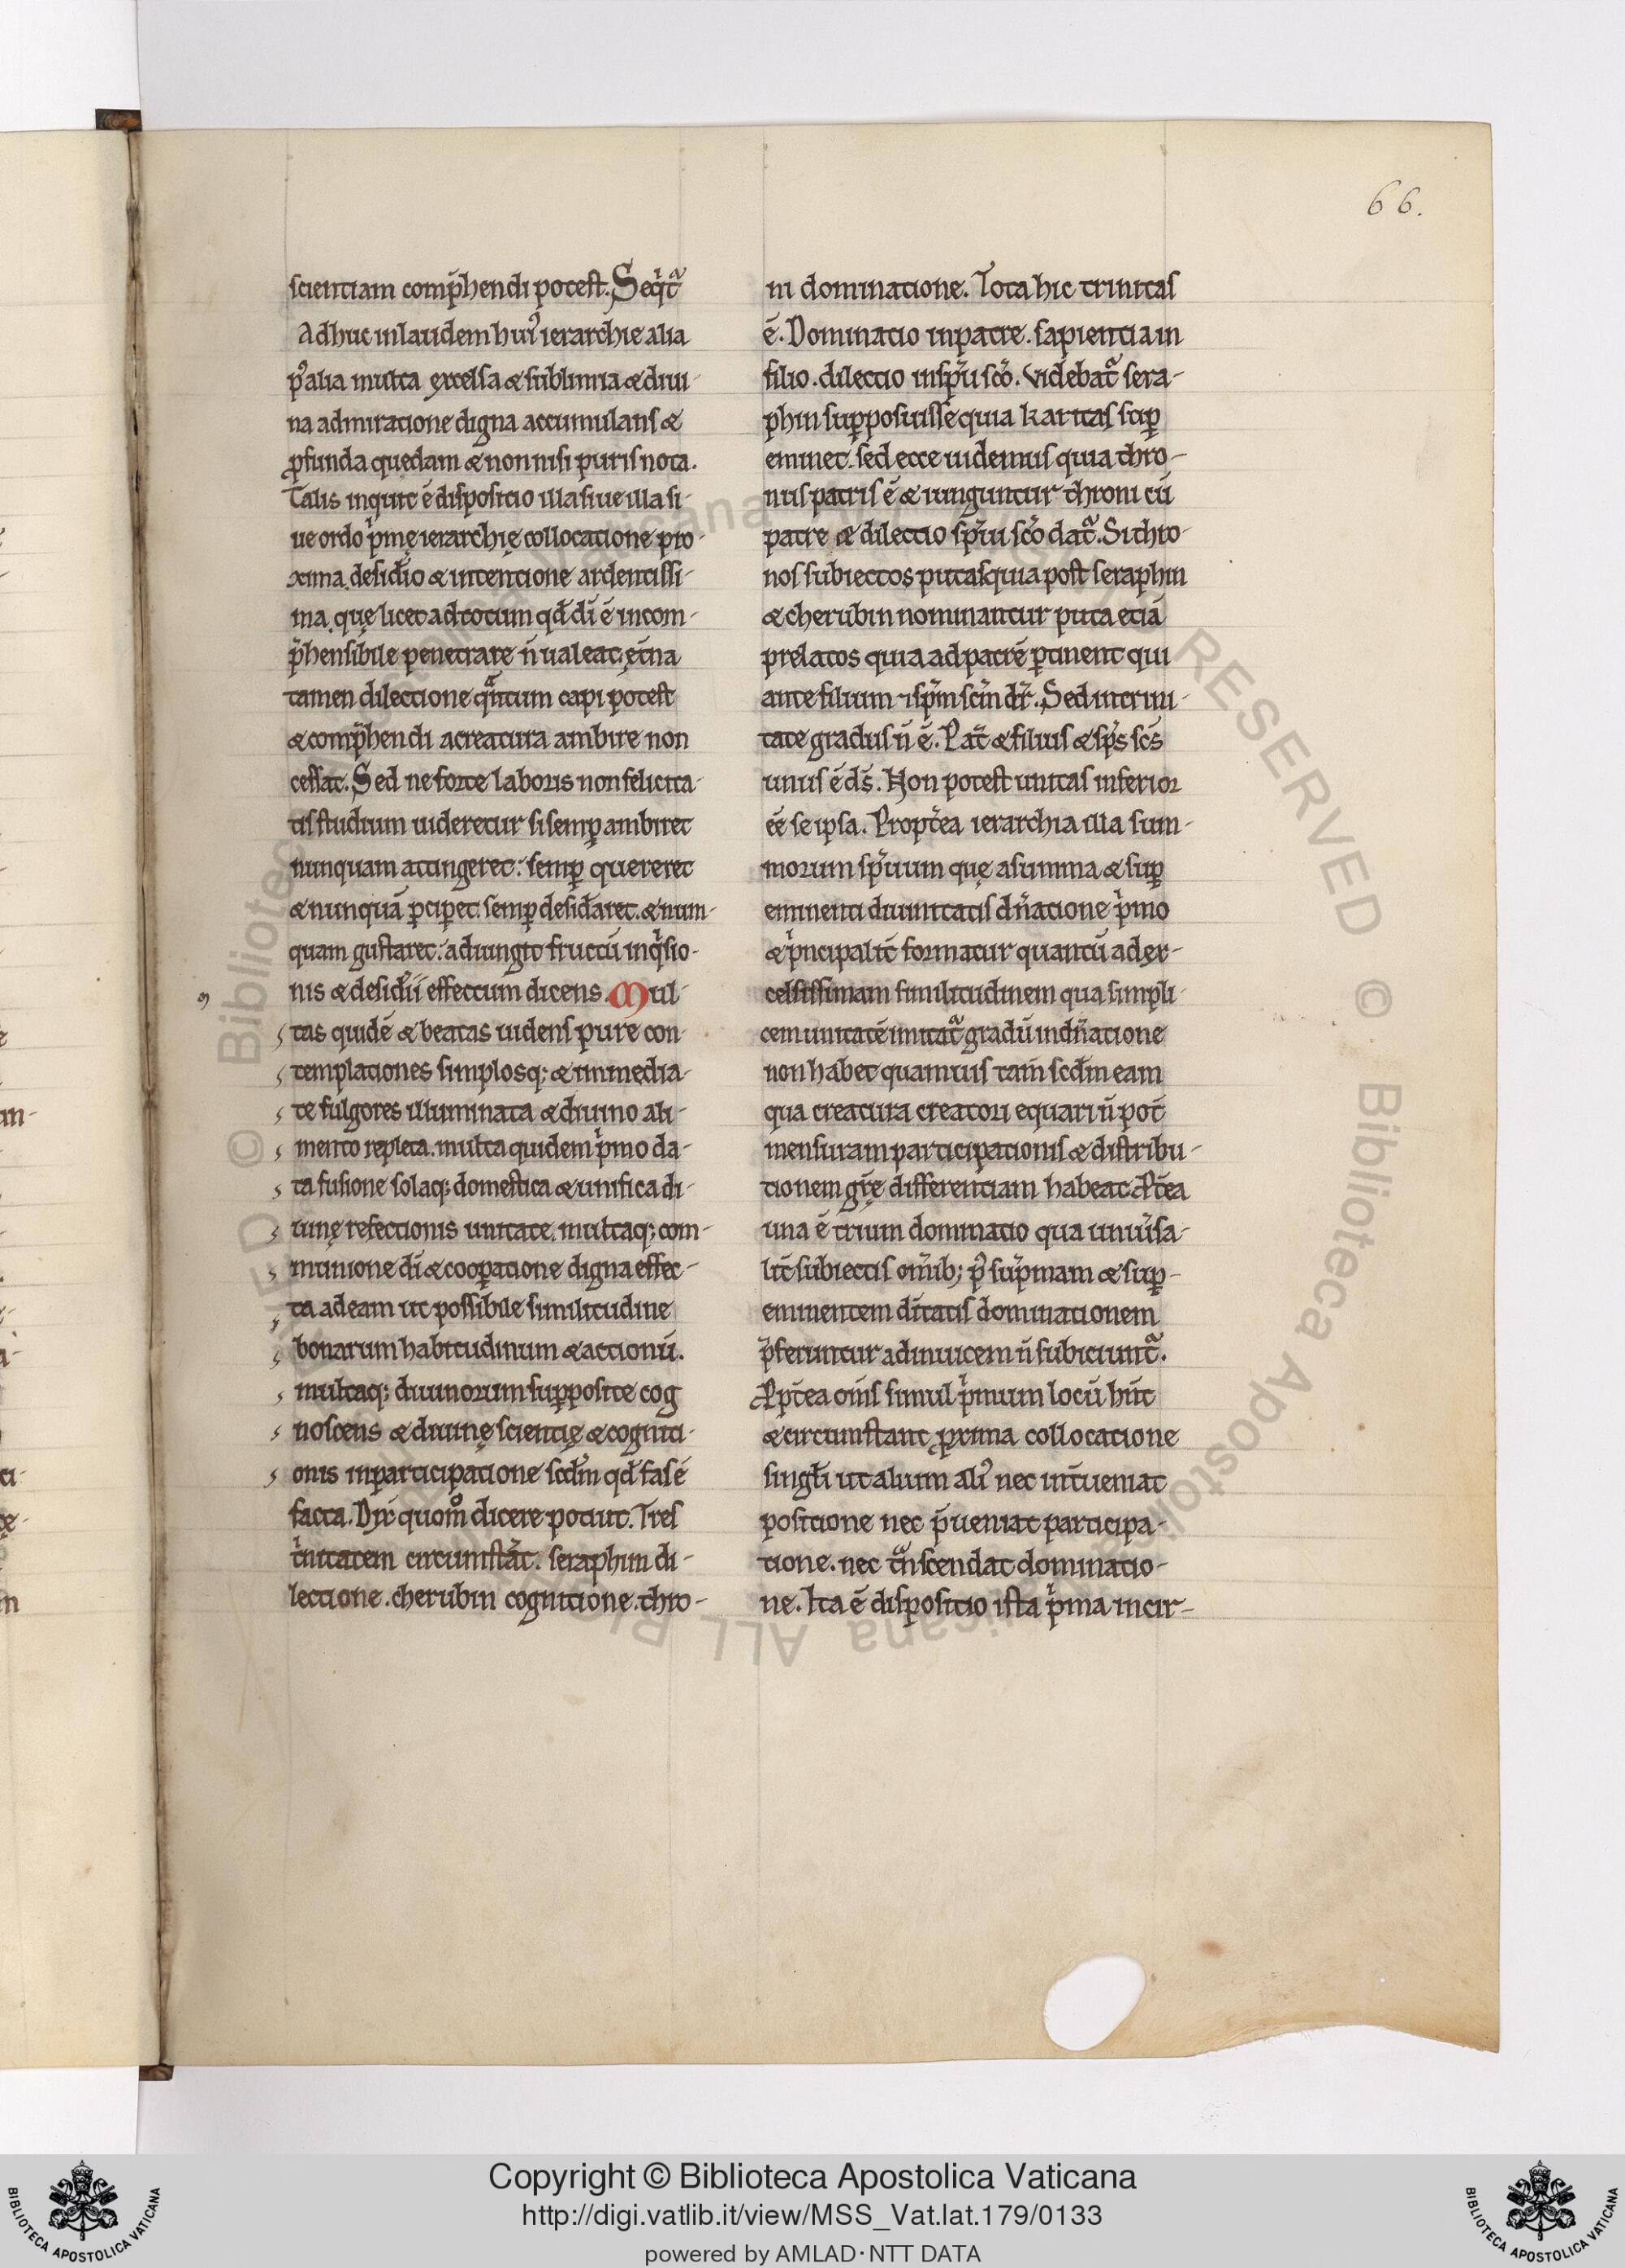 66.
scientiam comp̄hendi potest. Seqͥtᷓ
Adhuc in laudem huiꝰ ierarchie alia
pꝰ alia multa excelsa & sublimia & diui-
na admiratione digna accumulans &
ꝓfunda quedam & non nisi puris nota.
Talis inquit ē dispositio illa siue illa si-
ue ordo pͥmę ierarchię collocatione pro-
xima. desid̓io & intentione ardentissi-
ma. quę licet ad totum qđ dī ē incom-
p̄hensibile penetrare n̄ ualeat, et̄na
tamen dilectione qᷓntum capi potest
& comp̄hendi a creatura ambire non
cessat. Sed ne forte laboris non felicita-
tis studium uideretur si semꝑ ambiret
nunquam attingeret: semꝑ quereret
& nunquā ꝑciꝑet. semꝑ desid̓aret. & nun-
quam gustaret: adiungit fructū inqͥsitio-
nis & desid̓ii effectum dicens. Mul-
tas quidē & beatas uidens pure con-
templationes simplosq; & immedia-
te fulgores illuminata & diuino ali-
mento repleta. multa quidem pͥmo da-
ta fusione solaq; domestica & unifica di-
uinę refectionis unitate. multaq; com-
munione dī & cooꝑatione digna effec-
ta ad eam ut possibile similitudine
bonarum habitudinum & actionū.
multaq; diuinorum supposite cog
noscens & diuinę scientię & cogniti-
onis in participatione scd̄m qđ fas ē
facta. Dix̄ quom̊ dicere potuit. Tres
tͥnitatem circumstāt. seraphim di-
lectione. cherubin cognitione. thro-
ni dominatione. Tota hic trinitas
ē. Dominatio in patre. sapientia in
filio. dilectio in sp̄u scō. Videbatᷓ sera-
phin supposuisse quia karitas suꝑ
eminet. sed ecce uidemus quia thro-
nus patris ē & iunguntur throni cū
patre & dilectio sp̄ui scō datᷓ. Si thro-
nos subiectos putas quia post seraphin
& cherubin nominantur puta etiā
prelatos quia ad patrē ꝑtinent qui
ante filium ⁊ sp̄m scm̄ dr̄. Sed in trini-
tate gradus n̄ ē. Pat̄ & filius & sp̄s scs̄
unus ē ds̄. Non potest unitas inferior
eē se ipsa. Propt̄ea ierarchia illa sum-
morum sp̄uum quę a summa & suꝑ
eminenti diuinitatis dn̄atione pͥmo
& pͥncipalit̄ formatur quantū ad ex-
celsissimam similitudinem qua simpli-
cem unitatē imitatᷓ gradū in dn̄atione
non habet quamuis tam̄ scd̄m eam
qua creatura creatori equari n̄ pot̄
mensuram participationis & distribu-
tionem gr̄ę differentiam habeat. Ꝓpt̄ea
una ē trium dominatio qua uniūsa-
lit̄ subiectis om̄ib; pꝰ sup̄mam & suꝑ-
eminentem dītatis dominationem
p̄feruntur ad inuicem n̄ subiciuntᷓ.
Ꝓpt̄ea om̄s simul pͥmum locū hn̄t
& circumstant ꝓxima collocatione
singłi ut alium aliꝰ nec int̄ueniat
positione nec p̄ueniat participa-
tione. nec tᷓnscendat dominatio-
ne. Ita ē dispositio ista pͥma in cir-
© Biblioteca Apostolica Vaticana ALL RIGHTS RESERVED
© Biblioteca Apostolica Vaticana ALL RIGHTS RESERVED
BIBLIOTECA APOSTOLICA VATICANA
Copyright © Biblioteca Apostolica Vaticana
http://digi.vatlib.it/view/MSS_Vat.lat.179/0133
powered by AMLAD·NTT DATA
BIBLIOTECA APOSTOLICA VATICANA